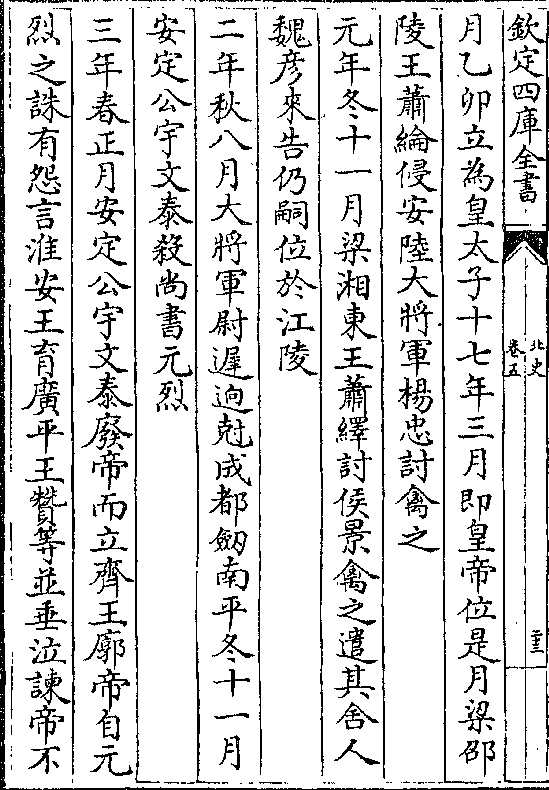 欽定四庫全書
北史
卷五
二十三
月乙卯立為皇太子十七年三月即皇帝位是月梁邵
陵王蕭綸侵安陸大將軍楊忠討禽之
元年冬十一月梁湘東王蕭繹討侯景禽之遣其舍人
魏彥來告仍嗣位於江陵
二年秋八月大將軍尉遲迥尅成都劒南平冬十一月
安定公宇文泰殺尚書元烈
三年春正月安定公宇文泰廢帝而立齊王廓帝自元
烈之誅有怨言淮安王育廣平王贊等並垂泣諫帝不